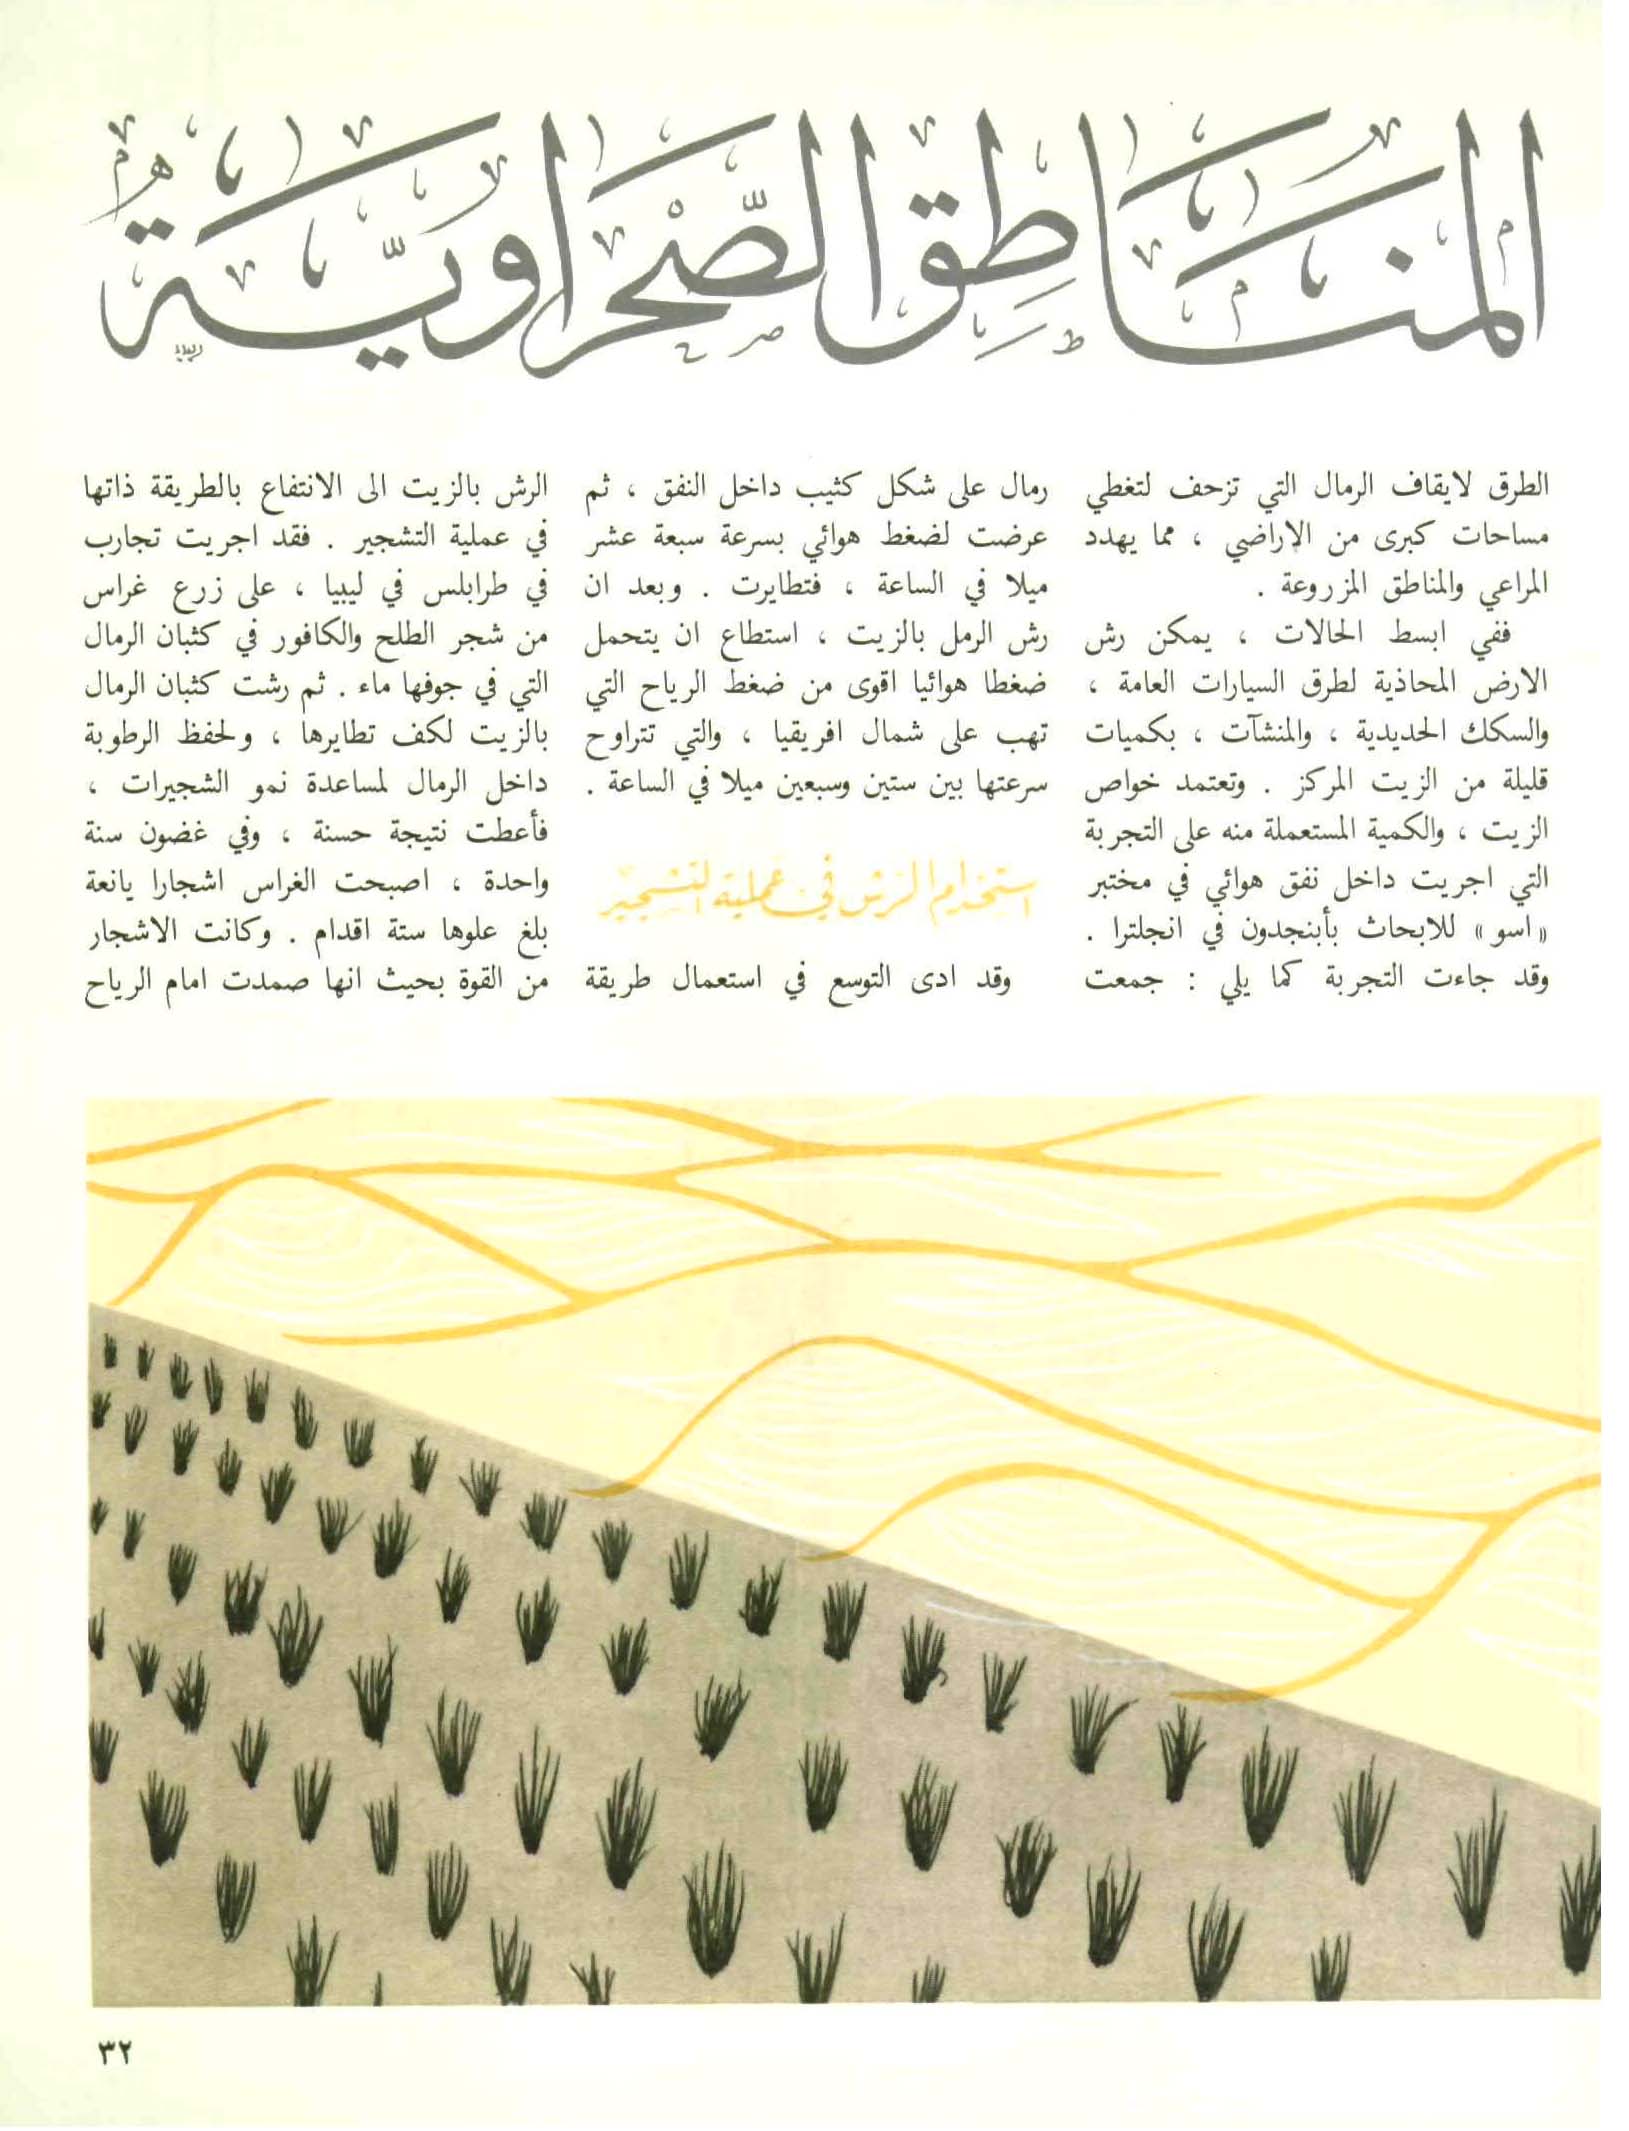 المناطق الصحراوية
الطرق لايقاف الرمال التي تزحف لتغطي
مساحات كبرى من الاراضي ، مما يهدد
المراعي والمناطق المزروعة .
ففي ابسط الحالات ، يمكن رش
الارض المحاذية لطرق السيارات العامة ،
والسكك الحديدية ، والمنشآت ، بكميات
قليلة من الزيت المركز . وتعتمد خواص
الزيت ، والكمية المستعملة منه على التجربة
التي اجريت داخل نفق هوائي في مختبر
« اسو » للابحاث بأبنجدون في انجلترا .
وقد جاءت التجربة كما يلي : جمعت
رمال على شكل كثيب داخل النفق ، ثم
عرضت لضغط هوائي بسرعة سبعة عشر
ميلا في الساعة ، فتطايرت . وبعد ان
رش الرمل بالزيت ، استطاع ان يتحمل
ضغطا هوائيا اقوى من ضغط الرياح التي
تهب على شمال افريقيا ، والتي تتراوح
سرعتها بين ستين وسبعين ميلا في الساعة .
استخدام الرش في عملية التشجير
وقد ادى التوسع في استعمال طريقة
الرش بالزيت الى الانتفاع بالطريقة ذاتها
في عملية التشجير . فقد اجريت تجارب
في طرابلس في ليبيا ، على زرع غراس
من شجر الطلح والكافور في كثبان الرمال
التي في جوفها ماء . ثم رشت كثبان الرمال
بالزيت لكف تطايرها ، ولحفظ الرطوبة
داخل الرمال لمساعدة نمو الشجيرات ،
فأعطت نتيجة حسنة ، وفي غضون سنة
واحدة ، اصبحت الغراس اشجارا يانعة
بلغ علوها ستة اقدام . وكانت الاشجار
من القوة بحيث انها صمدت امام الرياح
٣٢